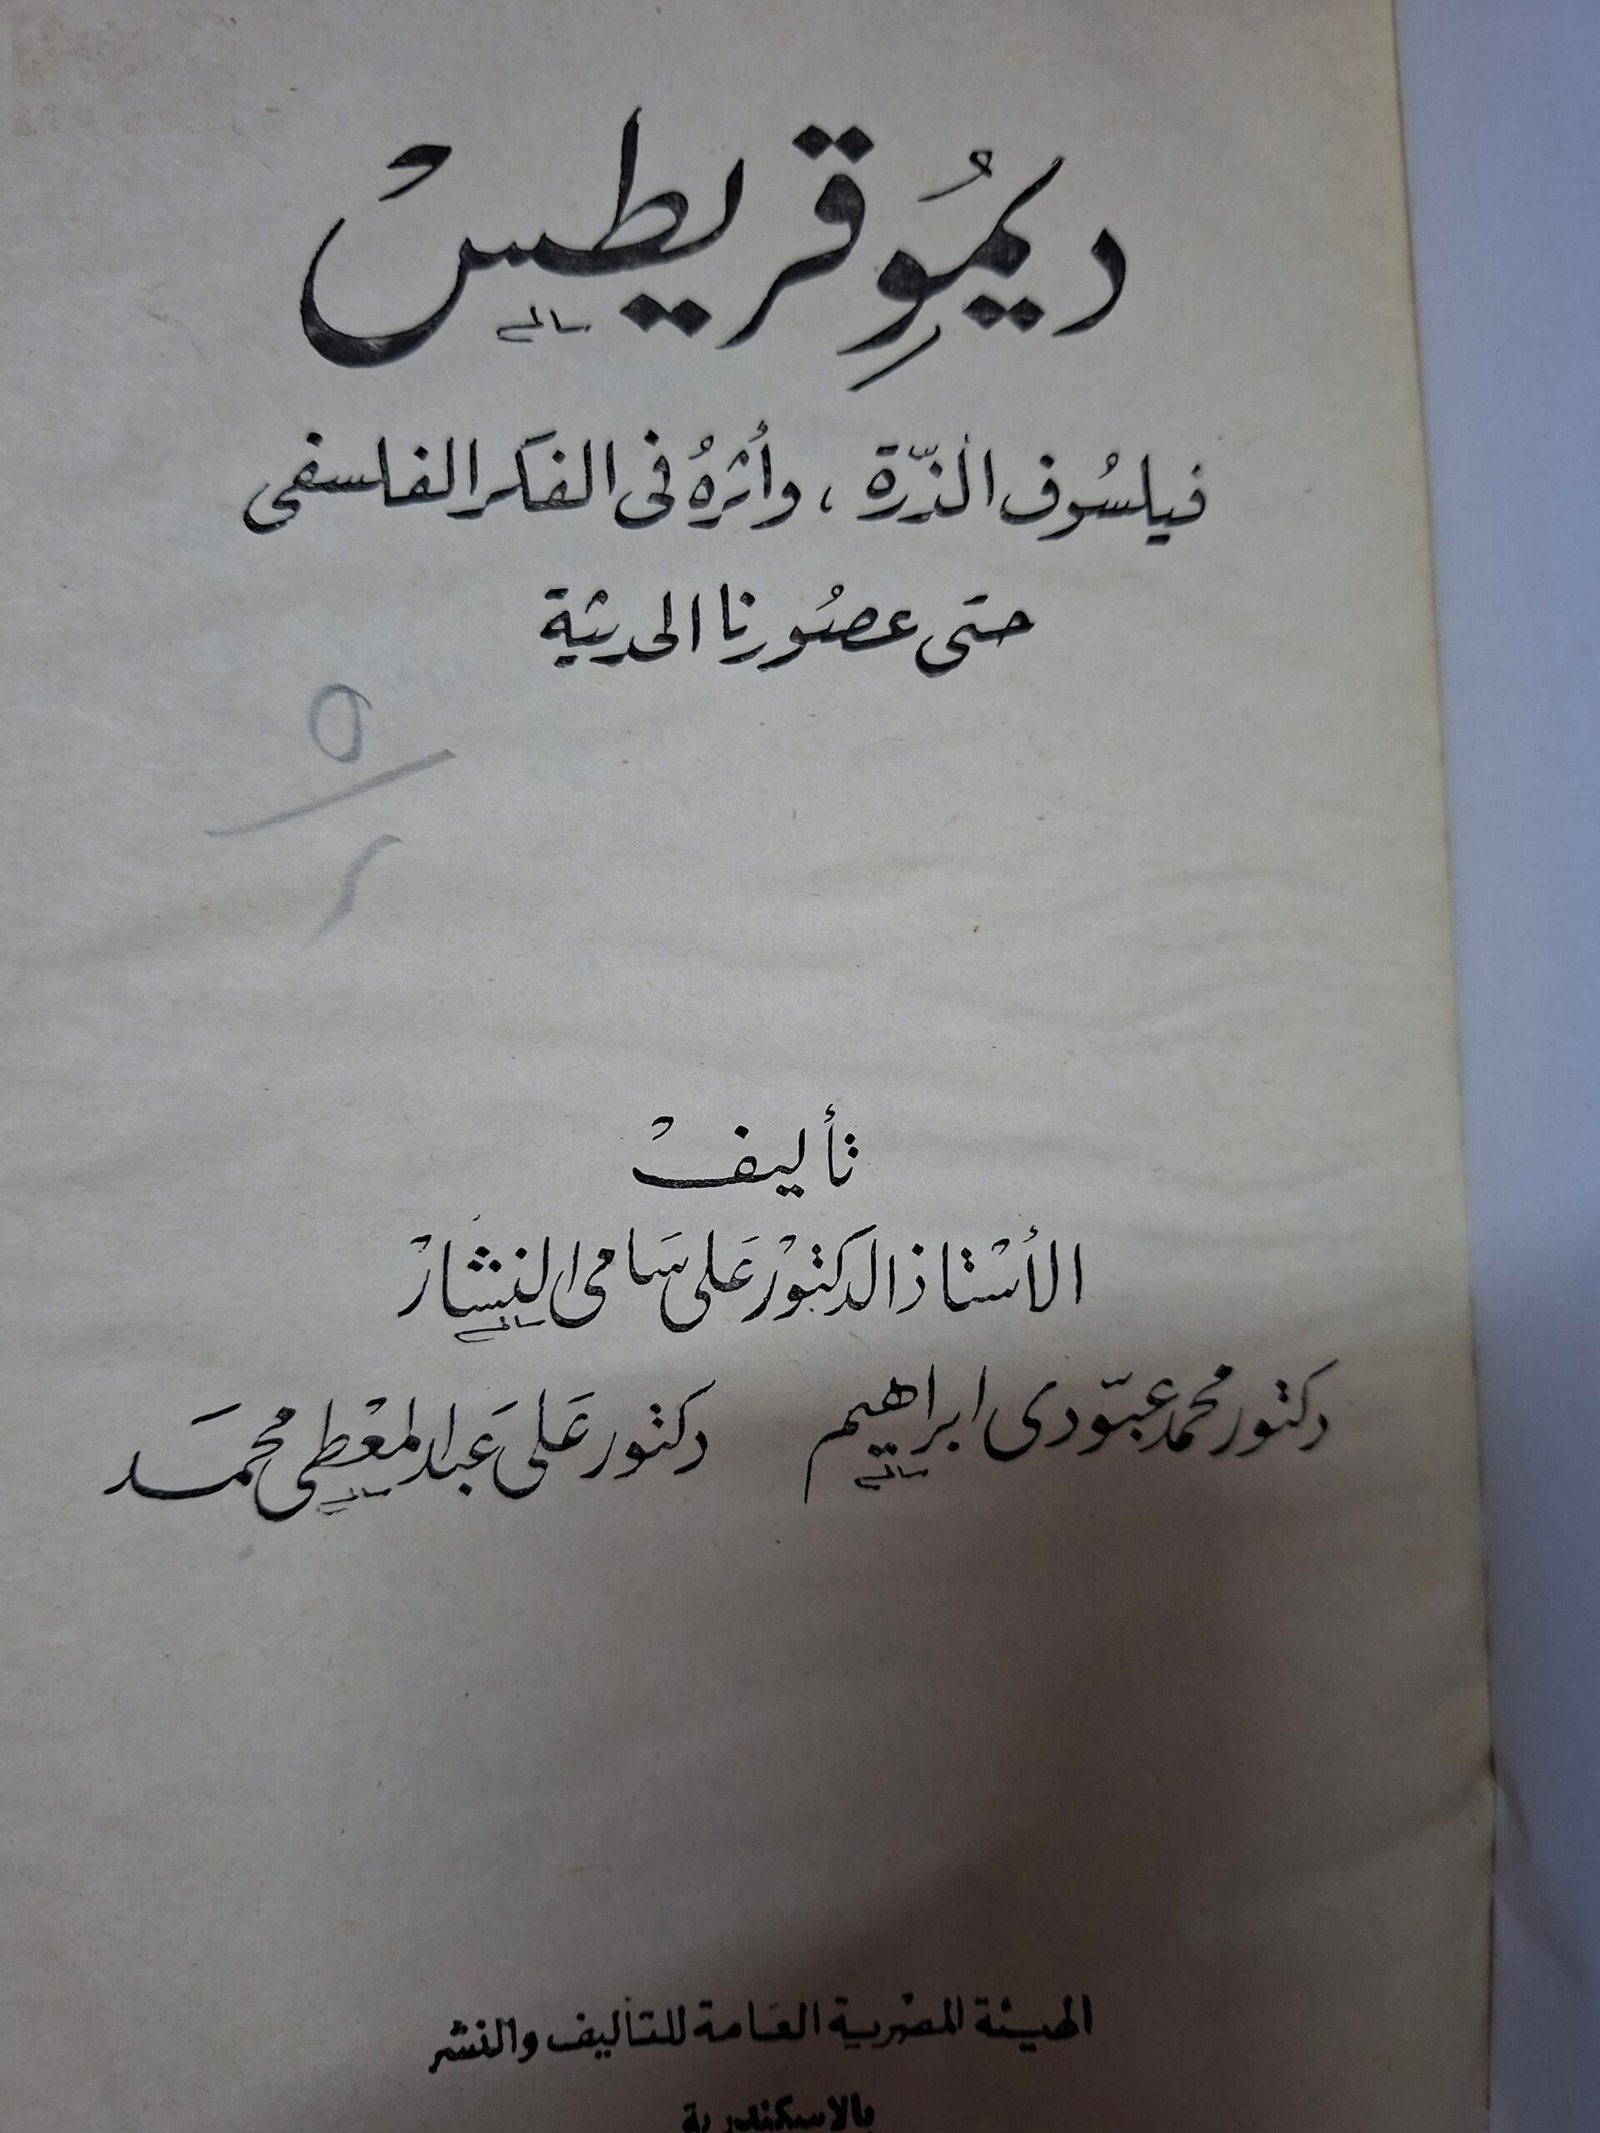 ديمُوقريطسْ
فيلسُوف الذرّة ، وأثرهُ فى الفكر الفلسفى
حتى عصُورنا الحديثة
٥
٢
تأليفْ
الأسْتاذ الدكتوْر عَلى سَامى النشارْ
دكتور محمد عبّودى ابراهيم دكتور عَلى عَبد المعْطى محمَد
الهيئة المصْرية العَامة للتأليف والنشر
بالاسكندرية